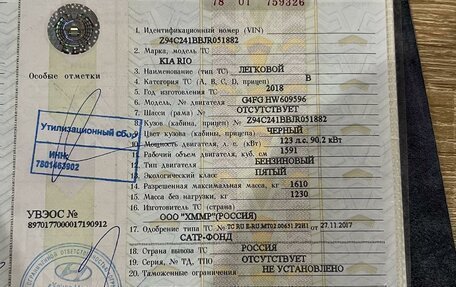 78 01 759326
1. Идентификационный номер (VIN)
Z94C241BBJR051882
2. Марка, модель ТС
KIA RIO
3. Наименование (тип ТС) ЛЕГКОВОЙ
4. Категория ТС (A, B, C, D, прицеп) B
5. Год изготовления ТС 2018
6. Модель, № двигателя G4FG HW609596
7. Шасси (рама) № ОТСУТСТВУЕТ
8. Кузов (кабина, прицеп) № Z94C241BBJR051882
9. Цвет кузова (кабины, прицепа) ЧЕРНЫЙ
10. Мощность двигателя, л. с. (кВт) 123 л.с. 90.2 кВт
11. Рабочий объем двигателя, куб. см 1591
12. Тип двигателя БЕНЗИНОВЫЙ
13. Экологический класс ПЯТЫЙ
14. Разрешенная максимальная масса, кг 1610
15. Масса без нагрузки, кг 1230
16. Изготовитель ТС (страна)
ООО "ХММР"(РОССИЯ)
17. Одобрение типа ТС № ТС RU E-RU.MT02.00651.P2И1 от 27.11.2017
САТР-ФОНД
18. Страна вывоза ТС РОССИЯ
19. Серия, № ТД, ТПО ОТСУТСТВУЕТ
20. Таможенные ограничения НЕ УСТАНОВЛЕНО
Особые отметки
Утилизационный сбор
ИНН:
7801463902
УВЭОС №
8970177000017190912